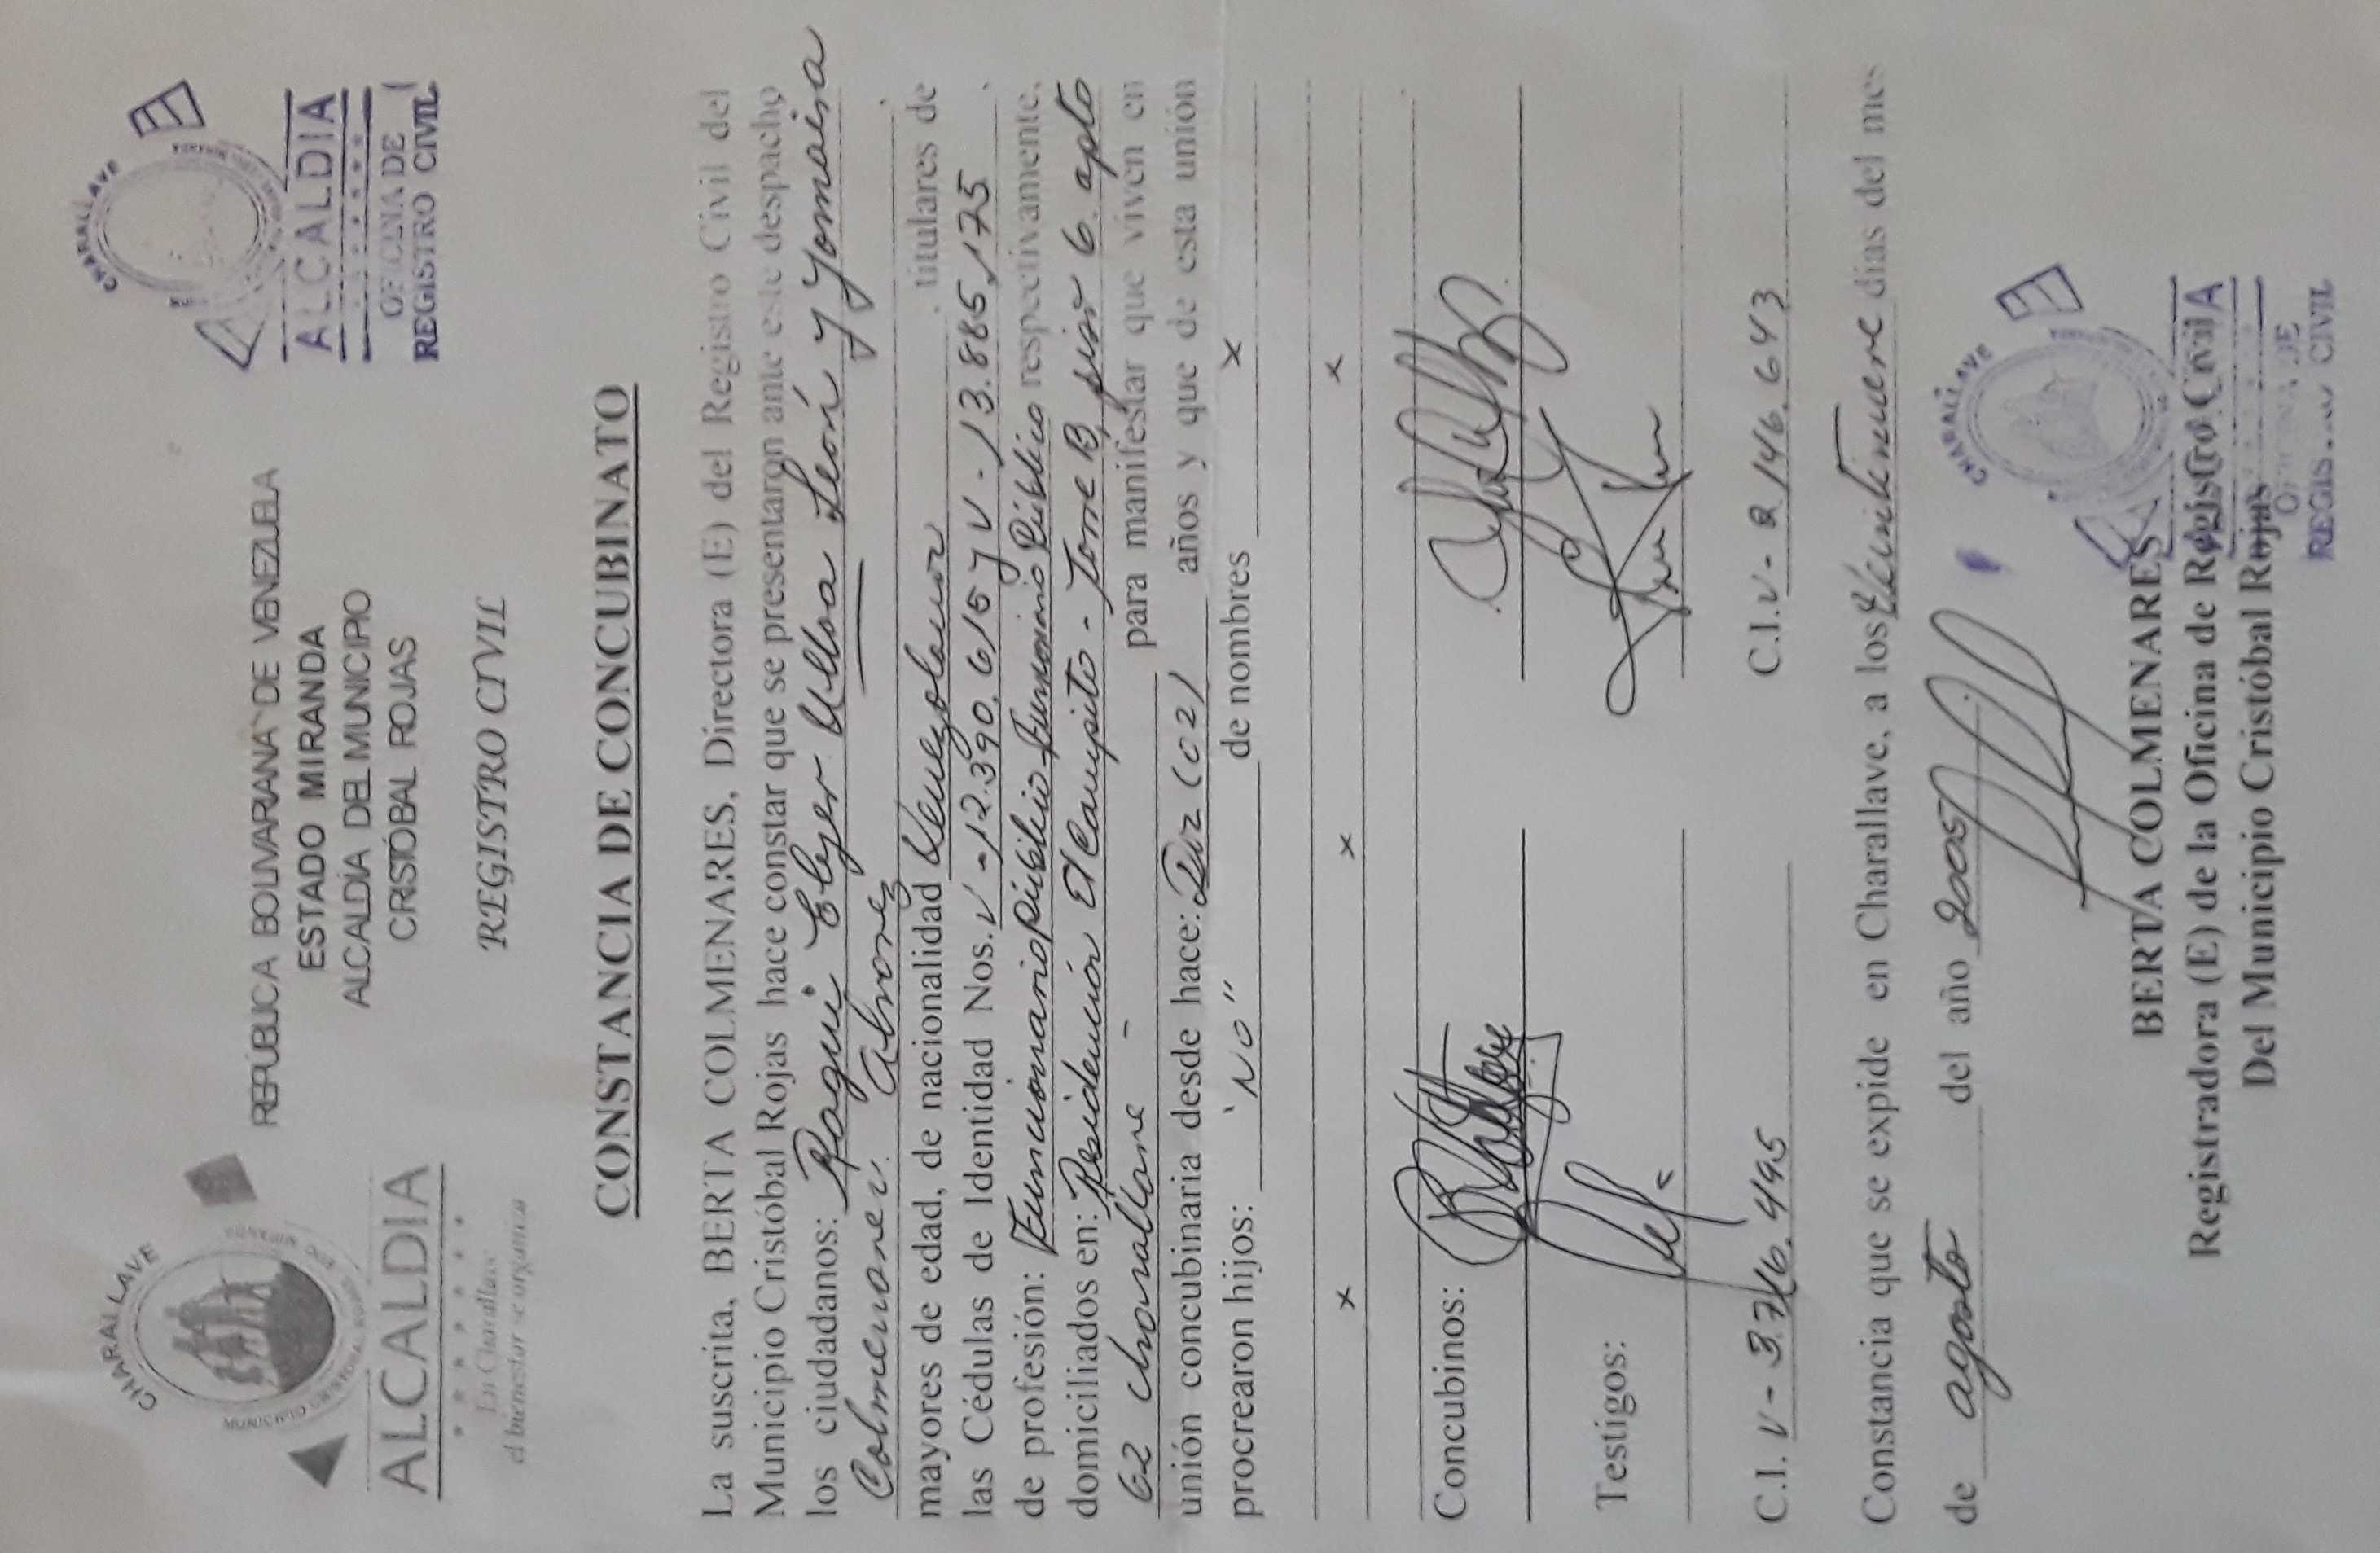 CHARALLAVE
ALCALDIA
En Charallave
el bienestar se organiza
REPÚBLICA BOLIVARIANA DE VENEZUELA
ESTADO MIRANDA
ALCALDÍA DEL MUNICIPIO
CRISTÓBAL ROJAS
REGISTRO CIVIL
CHARALLAVE
ALCALDIA
OFICINA DE
REGISTRO CIVIL
CONSTANCIA DE CONCUBINATO
La suscrita, BERTA COLMENARES, Directora (E) del Registro Civil del
Municipio Cristóbal Rojas hace constar que se presentaron ante este despacho
los ciudadanos: Raqui Elyer Ulloa León y Yomaira
Colmenares Alvarez
mayores de edad, de nacionalidad Venezolanos, titulares de
las Cédulas de Identidad Nos. V-12.390.615 y V-13.885.175
de profesión: Funcionario Público - Funcionario Pública respectivamente,
domiciliados en: Residencias El Campito - Torre B, piso 6. apto
62 Charallave - para manifestar que viven en
unión concubinaria desde hace: Dos (02) años y que de esta unión
procrearon hijos: "NO" de nombres x
x x x
Concubinos:
Testigos:
C.I. V-3.716.495 C.I. V-2.146.643
Constancia que se expide en Charallave, a los Veintinueve días del mes
de agosto del año 2005.
BERTA COLMENARES
Registradora (E) de la Oficina de Registro Civil
Del Municipio Cristóbal Rojas
CHARALLAVE
OFICINA DE
REGISTRO CIVIL